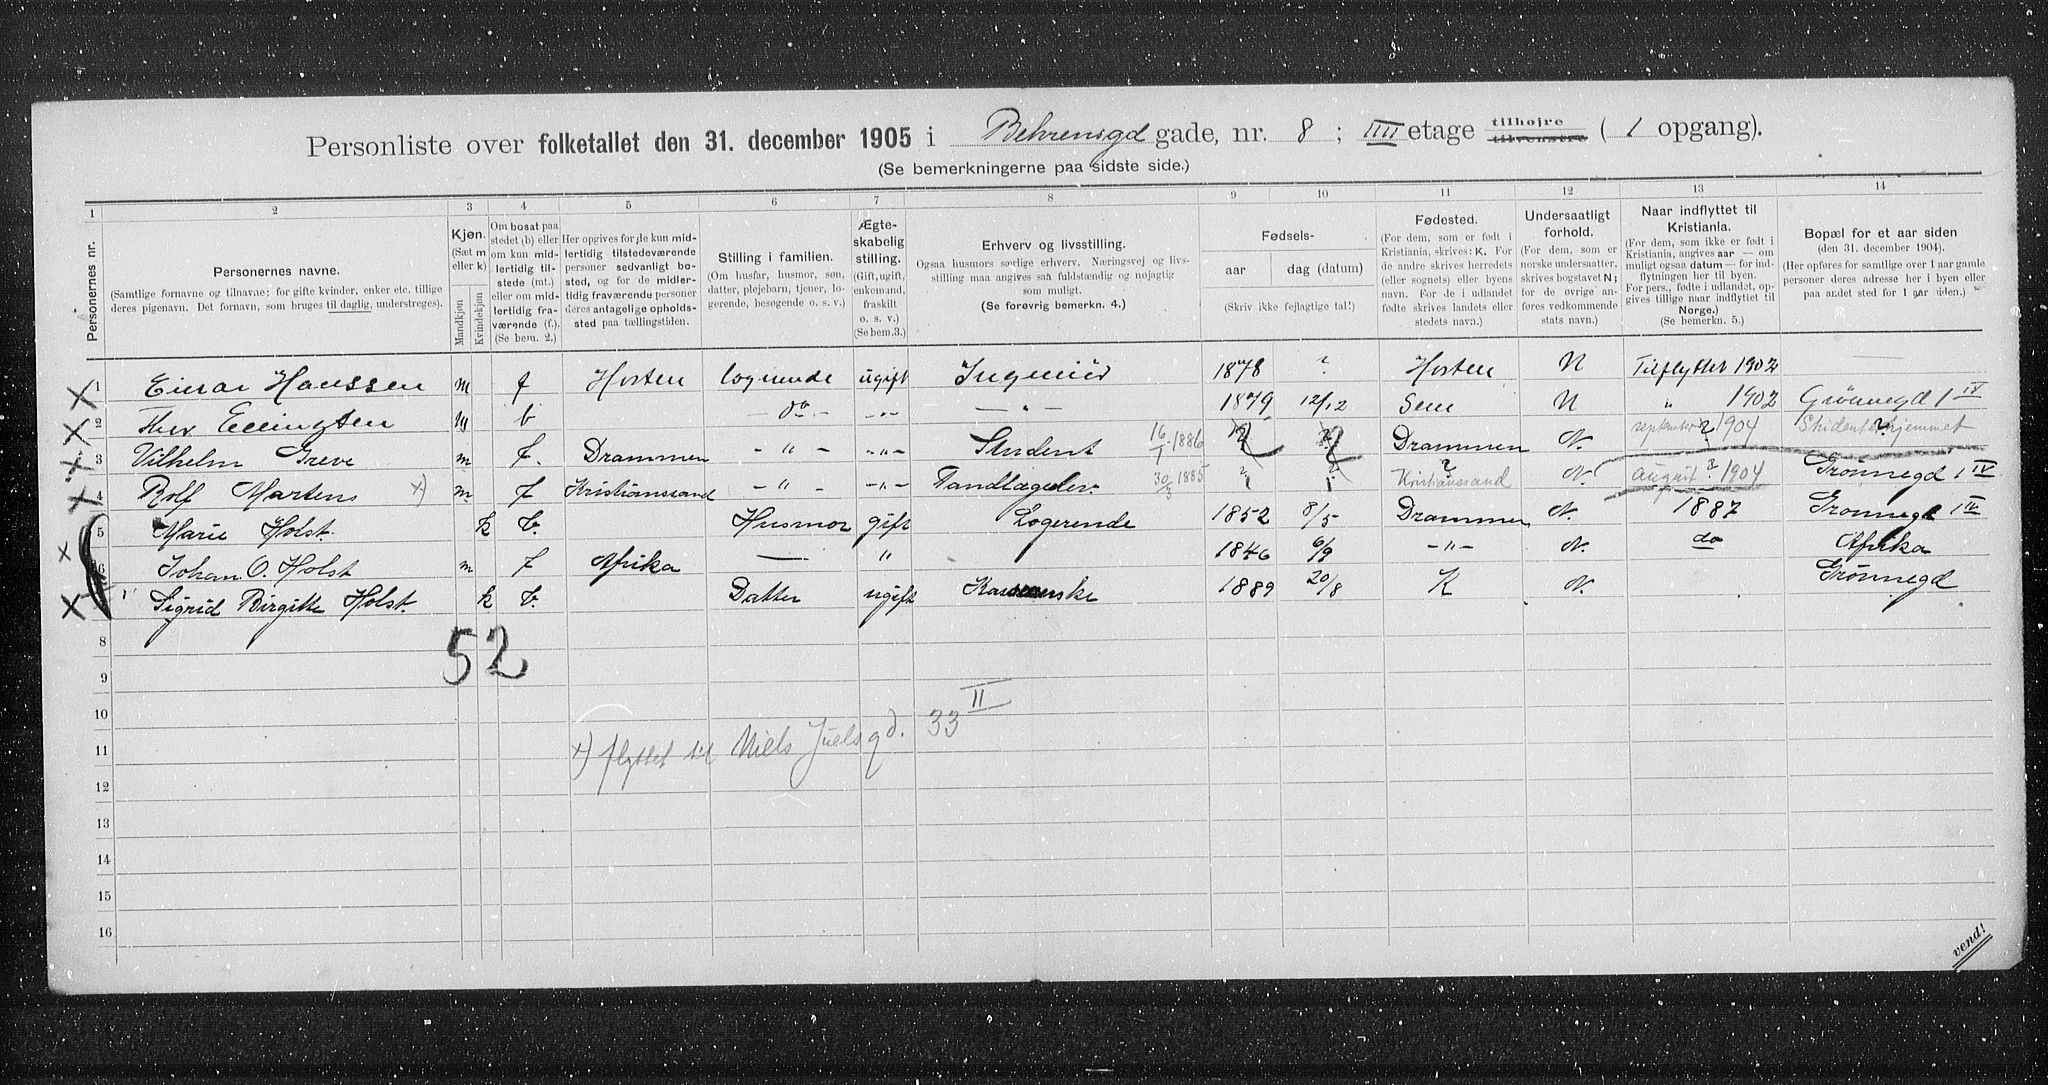 Personliste over folketallet den 31. december 1905 i Behrensgd gade, nr. 8 ; IIII etage tilhøjre tilvenstre ( 1 opgang).
(Se bemerkningerne paa sidste side.)
1 2 3 4 5 6 7 8 9 10 11 12 13 14
Personernes nr.
Personernes navne.
(Samtlige fornavne og tilnavne; for gifte kvinder, enker etc. tillige
deres pigenavn. Det fornavn, som bruges til daglig, understreges).
Kjøn.
(Sæt m
eller k)
Mandkjøn
Kvindekjøn
Om bosat paa
stedet (b) eller
om kun mid-
lertidig til-
stede (mt.)
eller om mid-
lertidig fra-
værende (f.).
(Se bem. 2.)
Her opgives for de kun mid-
lertidig tilstedeværende
personer sedvanligt bo-
sted, og for de midler-
tidig fraværende personer
deres antagelige opholds-
sted paa tællingstiden.
Stilling i familien.
(Om husfar, husmor, søn,
datter, plejebarn, tjener, lo-
gerende, besøgende o. s. v.)
Ægte-
skabelig
stilling.
(Gift, ugift,
enkemand,
fraskilt
o. s. v.)
(Se bem.3.)
Erhverv og livsstilling.
Ogsaa husmors særlige erhverv. Næringsvej og livs-
stilling maa angives saa fuldstændig og nøjagtig
som muligt.
(Se forøvrig bemerkn. 4.)
Fødsels-
aar dag (datum)
(Skriv ikke fejlagtige tal!)
Fødested.
(For dem, som er født i
Kristiania, skrives: K. For
de andre skrives herredets
(eller sognets) eller byens
navn. For de i udlandet
fødte skrives landets eller
stedets navn.)
Undersaatligt
forhold.
(For dem, som er
norske undersaatter,
skrives bogstavet N;
for de øvrige an-
føres vedkommende
stats navn.)
Naar indflyttet til
Kristiania.
(For dem, som ikke er født i
Kristiania, angives aar — om
muligt ogsaa datum — for ind-
flytningen her til byen.
For pers., fødte i udlandet, op-
gives tillige naar indflyttet til
Norge.)
(Se bemerkn. 5.)
Bopæl for et aar siden
(den 31. december 1904).
(Her opføres for samtlige over 1 aar gamle
personer deres adresse her i byen eller
paa andet sted for 1 aar siden.)
1 Einar Hanssen m f Horten logerende ugift Ingeniør 1878 ? Horten N Tilflyttet 1902 —
2 Thor Ellingsen m b — do — -"- — " — 1879 12/12 Sem N " 1902 Grønnegd 1 IV
3 Vilhelm Greve m f. Drammen - " - -"- Student 16/1 1886 ? ? Drammen N. september ? 1904 Studenterhjemmet ?
4 Rolf Martens x) m f Kristianssand - " - -"- Tandlægelev. 30/3 1885 ? ? Kristianssand ? N. august ? 1904 Grønnegd 1 IV
5 Marie Holst. k b. Husmor gift Logerende 1852 8/5 Drammen N. 1887 Grønnegd 1 IV
6 Johan O. Holst m f Afrika — " 1846 6/9 -"- N. do Afrika
Sigrid Birgitte Holst. k b. Datter ugift 1889 20/8 K N. Grønnegd
8
52
9
10
x) flyttet til Niels Juels gd. 33 II
11
12
13
14
15
16
vend!